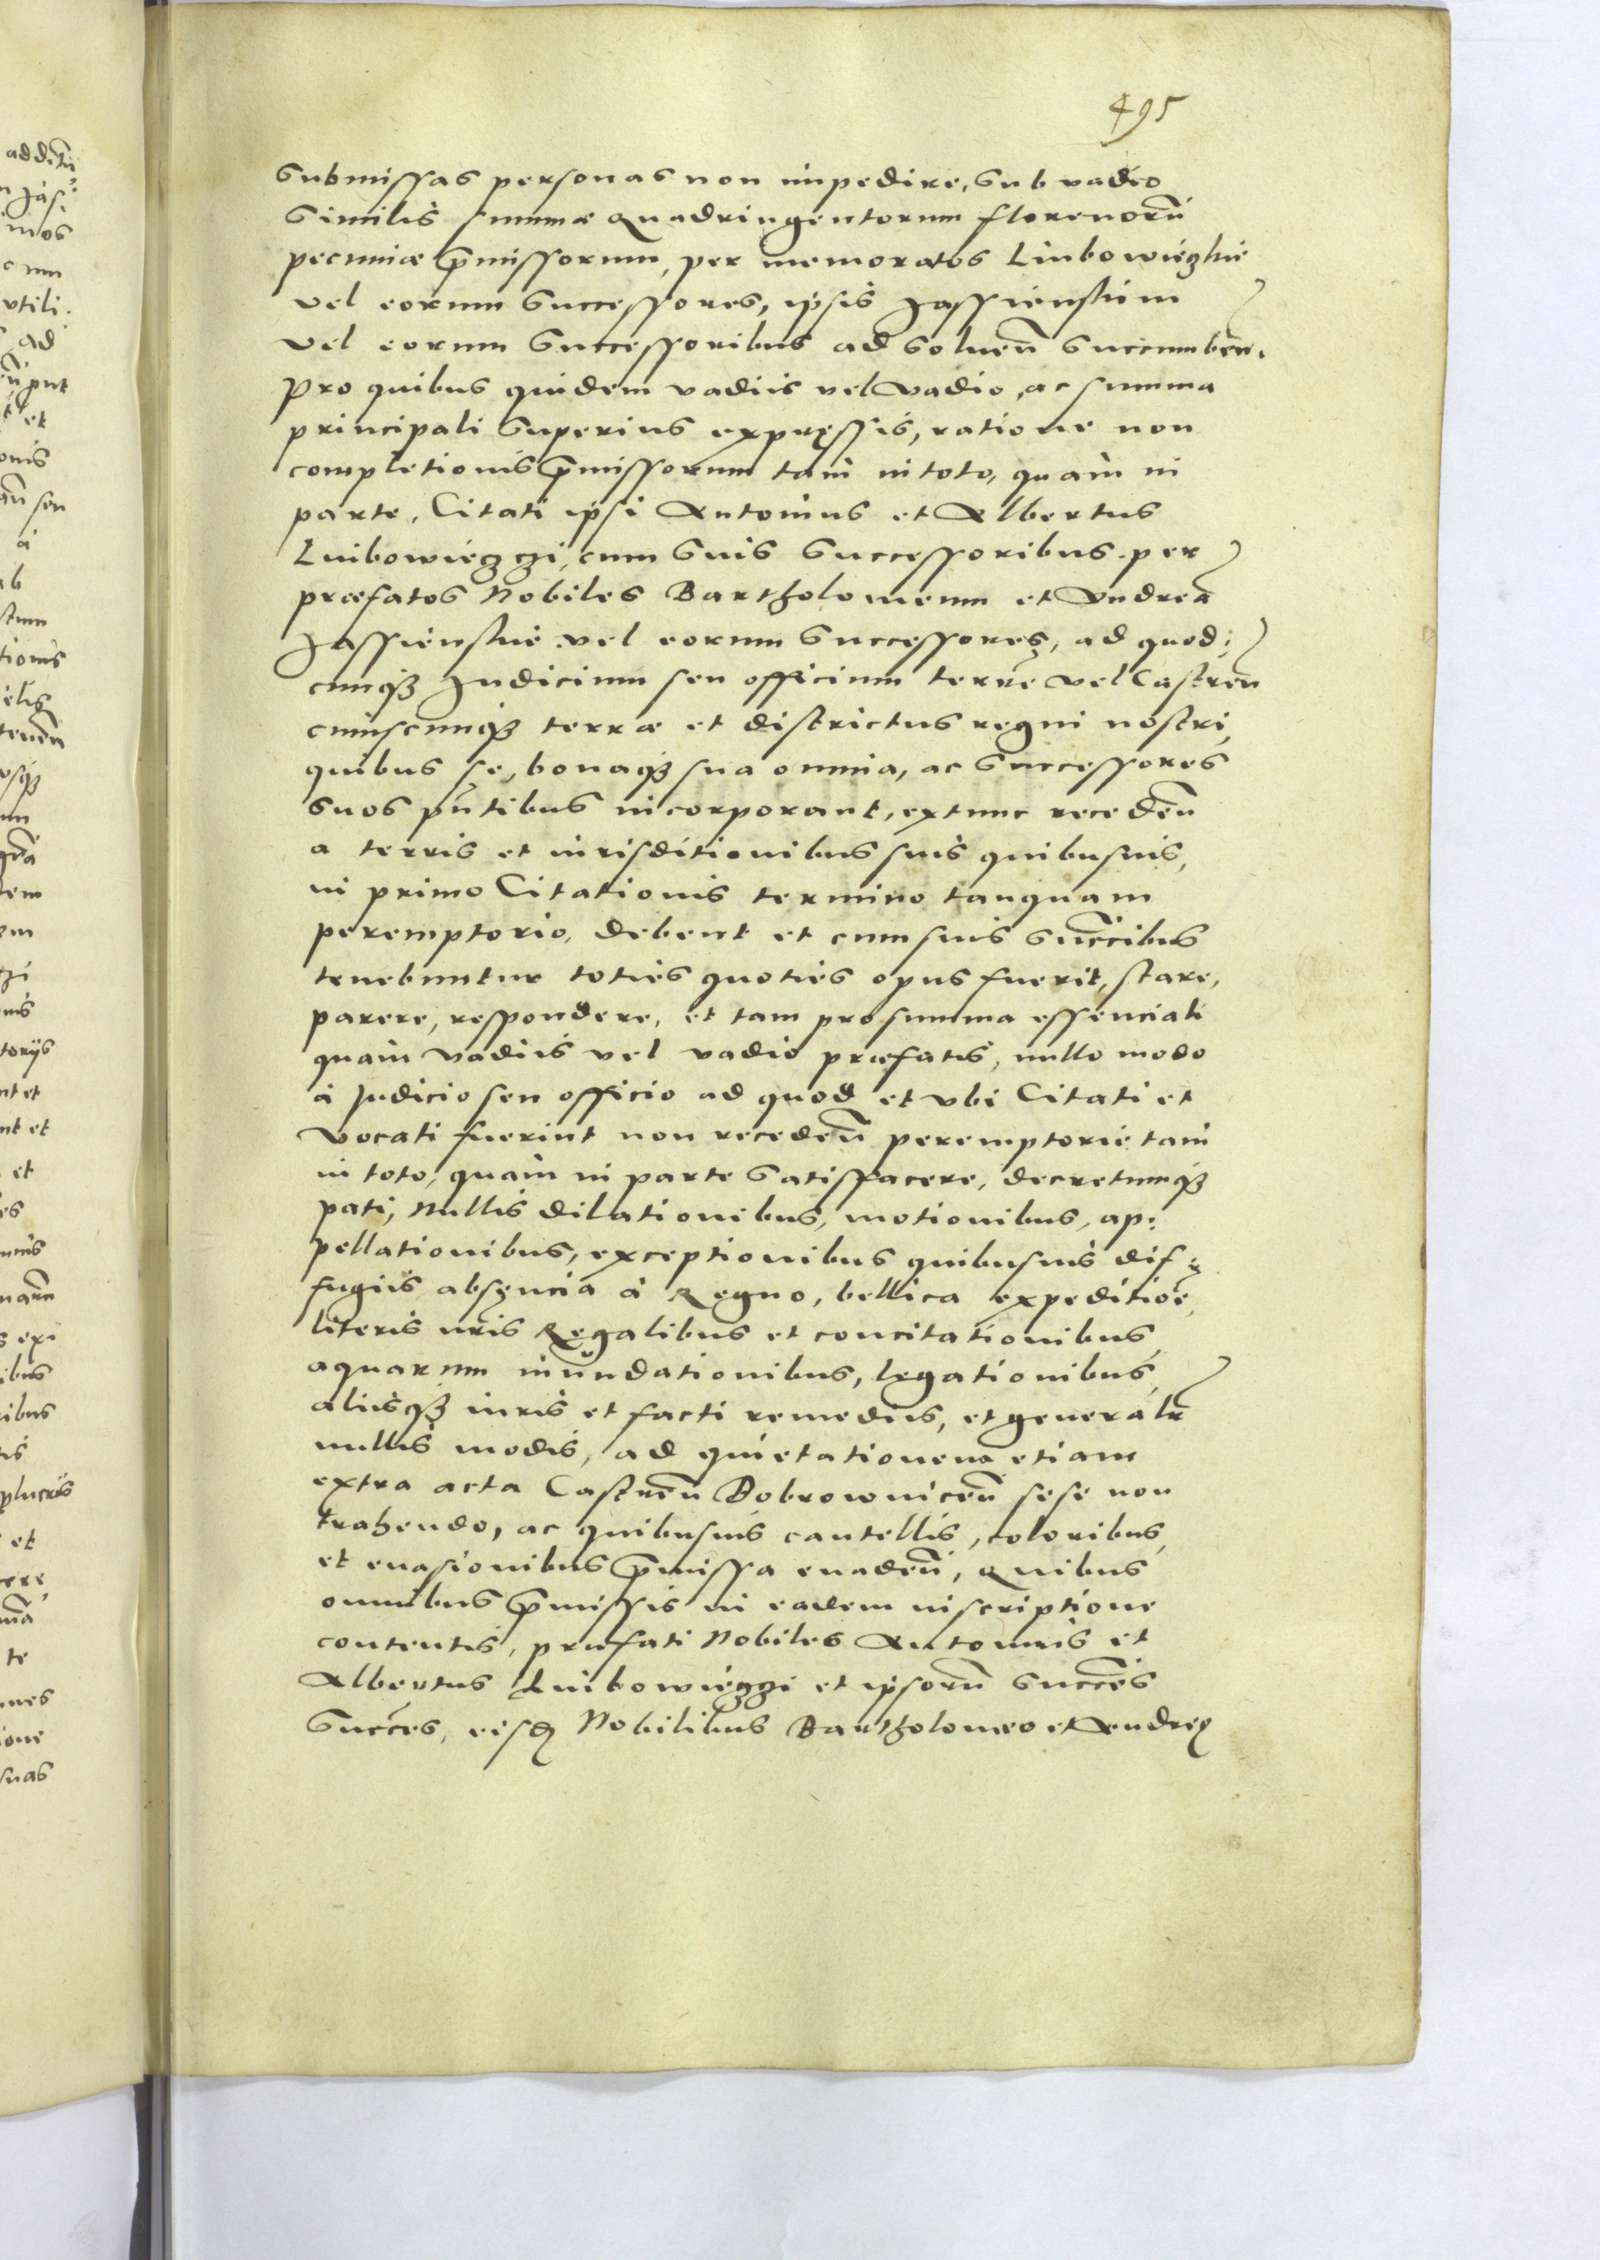 495
submissas personas non impedire, sub vadio
similis summæ Quadringentorum florenorū
pecuniæ p̄missorum, per memoratos Luibowiezkie
vel eorum successores, ipsis Jassienskim
vel eorum successoribus ad soluen̄ succumben̄.
Pro quibus quidem vadiis vel vadio, ac summa
principali superius expręssis, ratione non
completionis p̄missorum tam in toto, quàm in
parte, Citati ipsi Antonius et Albertus
Luibowiezczi, cum suis successoribus. per
præfatos Nobiles Bartholomeum et Andreā
Jassienskie vel eorum successores, ad quod:
cunqȝ Judicium seu officium terrē vel Castren̄
cuiuscunqȝ terræ et districtus regni nostri,
quibus se, bonaqȝ sua omnia, ac successores
suos pn̄tibus incorporant, extunc receden̄
a terris et iurisditionibus suis quibusuis,
in primo Citationis termino tanquam
peremptorio, debent et cum suis succ̄ibus
tenebuntur toties quoties opus fuerit, stare,
parere, respondere, et tam pro summa essenciali
quàm vadiis vel vadio præfatis, nullo modo
à Judicio seu officio ad quod et vbi Citati et
vocati fuerint non receden̄ peremptorie tam
in toto, quàm in parte satisfacere, decretumqȝ
pati, Nullis dilationibus, motionibus, ap:
pellationibus, exceptionibus quibusuis dif:
fugiis absęncia à Regno, bellica expeditiōe,
literis nr̄is Regalibus et concitationibus,
aquarum inundationibus, legationibus,
aliisqȝ iuris et facti remediis, et generalr̄
nullis modis, ad quietationem etiam
extra acta Castren̄ Bobrownicen̄ sese non
trahendo, ac quibusuis cautellis, coloribus,
et euasionibus p̄missa euaden̄, Quibus
omnibus p̄missis in eadem inscriptione
contentis, præfati Nobiles Antonius et
Albertus Luibowiezczi et ipsorū succēs
succēs, eisdem Nobilibus Bartholomeo et Andreę